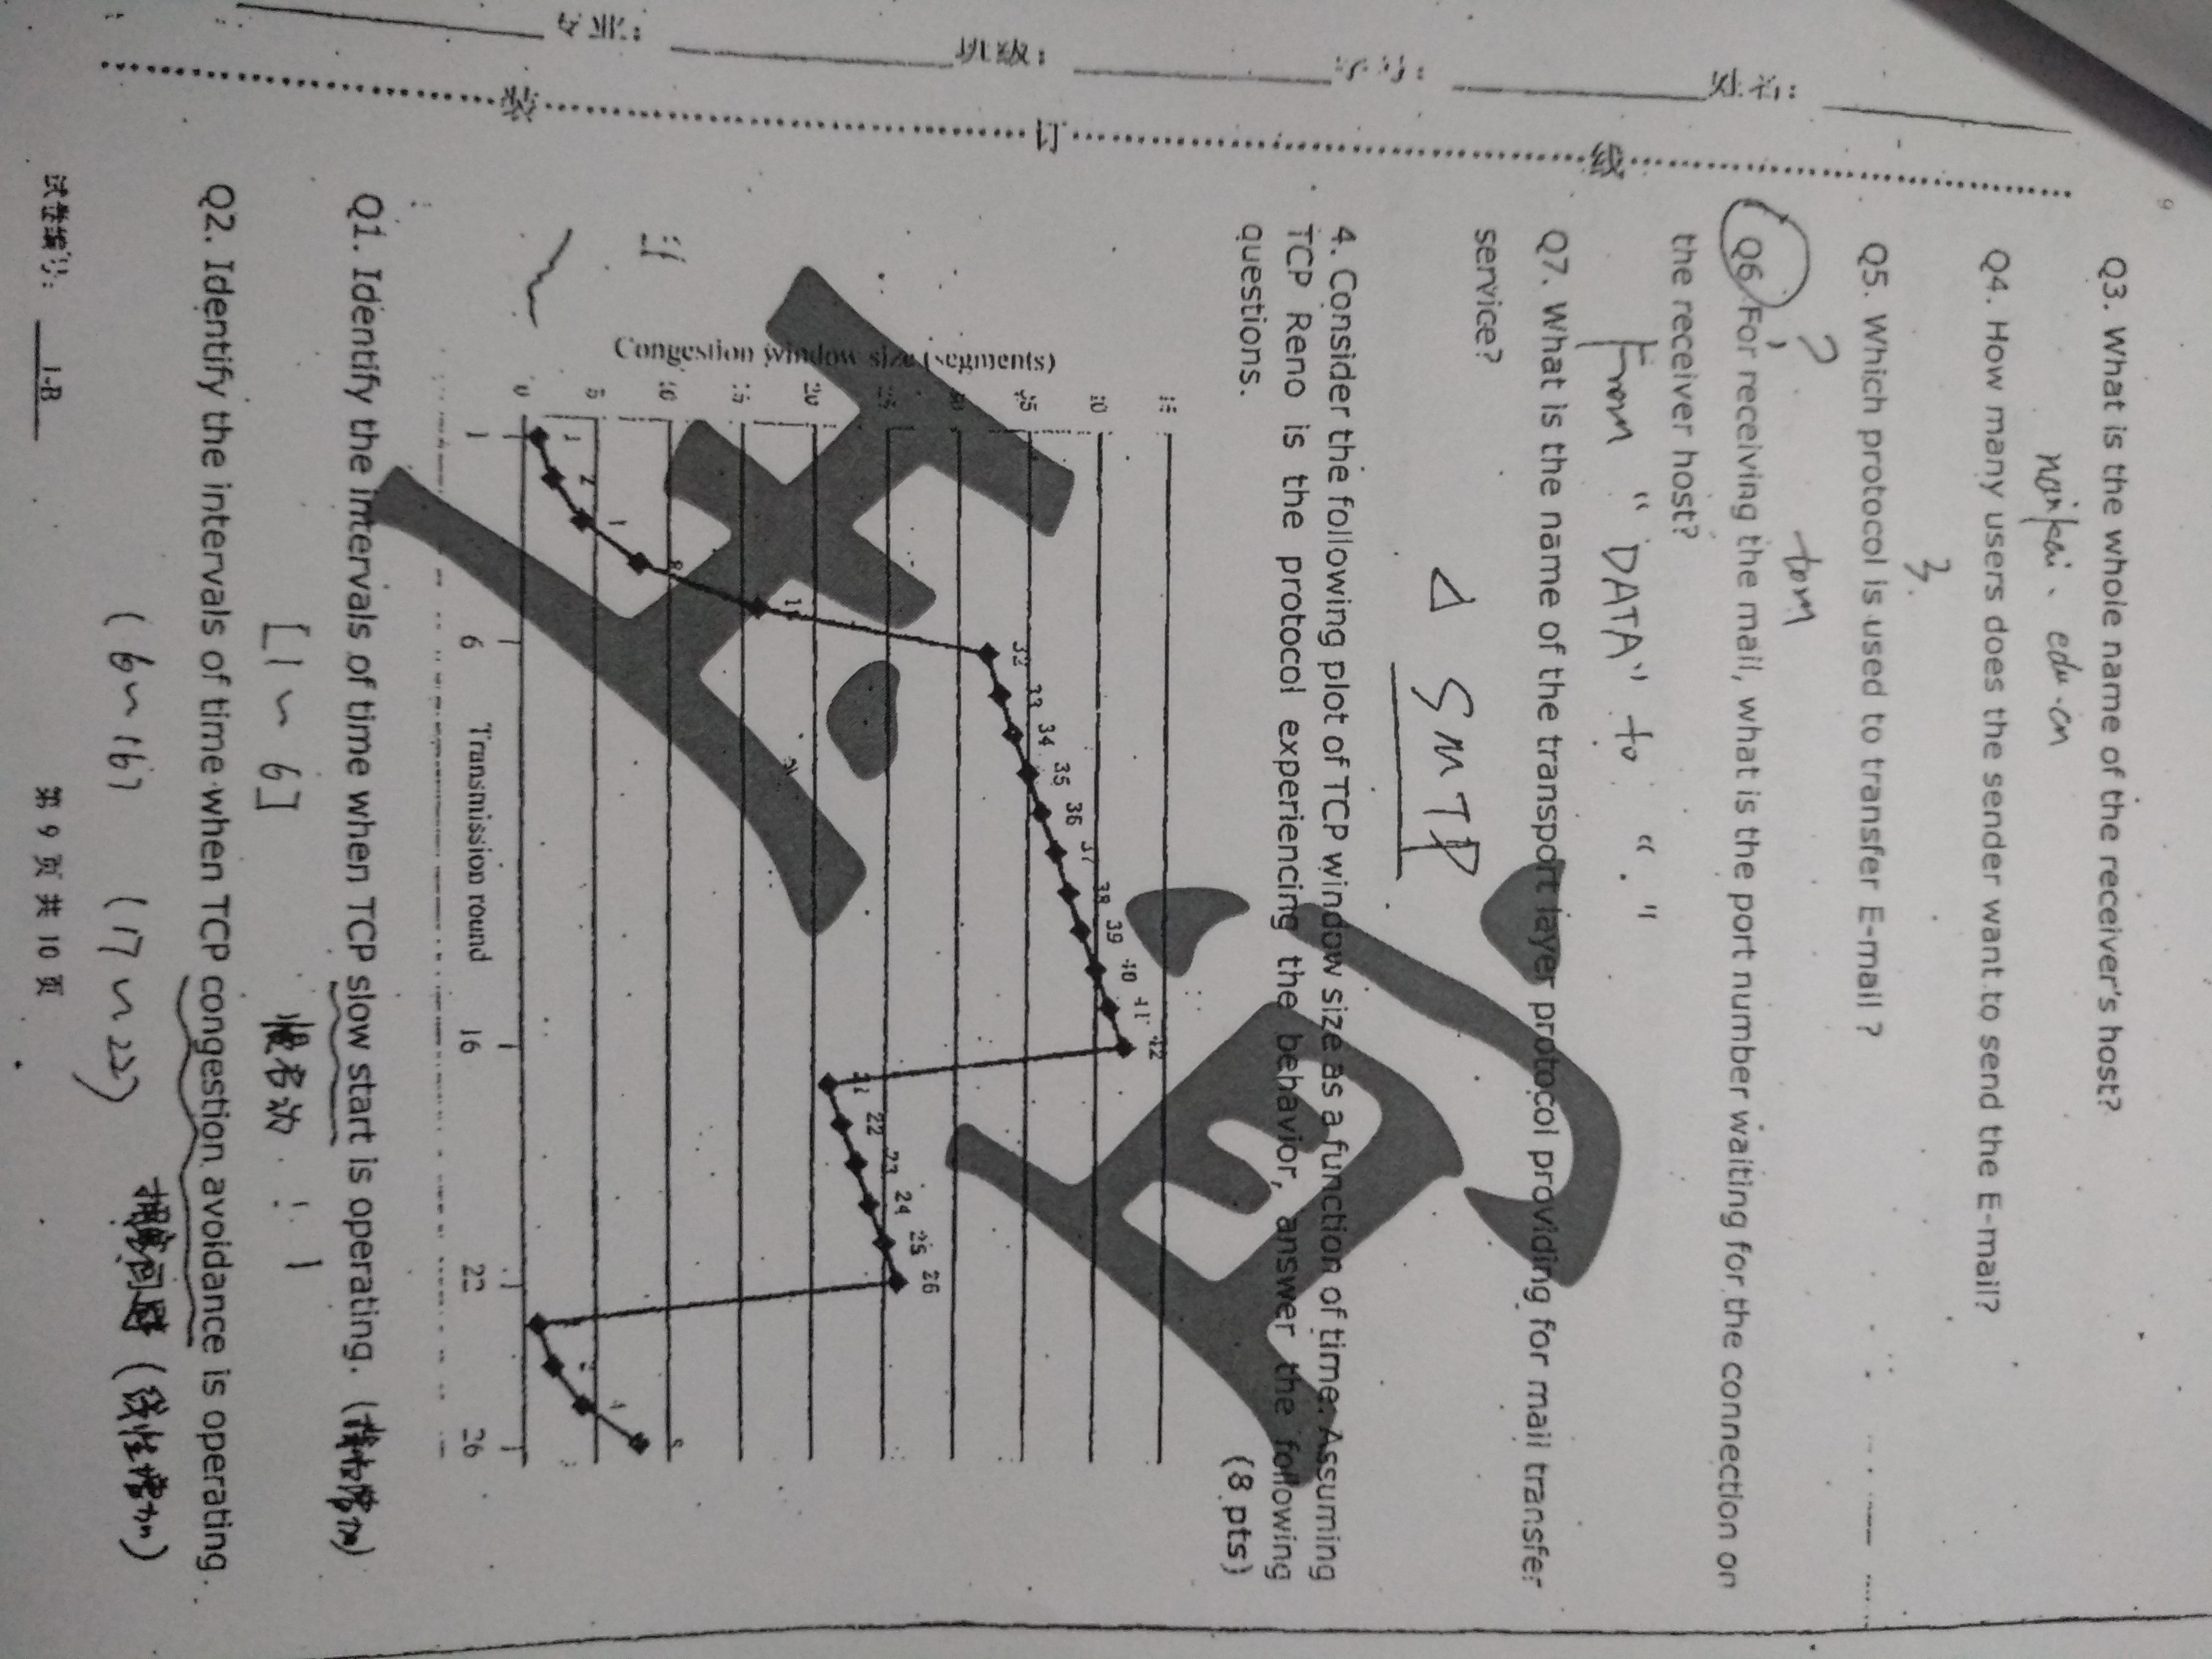 9
Q3. What is the whole name of the receiver's host?
nankai. edu.cn
Q4. How many users does the sender want to send the E-mail?
3.
Q5. Which protocol is used to transfer E-mail ?
? tom
Q6 For receiving the mail, what is the port number waiting for the connection on
the receiver host?
From "DATA" to "."
Q7. What is the name of the transport layer protocol providing for mail transfer
service?
△ SMTP
4. Consider the following plot of TCP window size as a function of time. Assuming
TCP Reno is the protocol experiencing the behavior, answer the following
questions.
(8 pts)
Congestion window size (segments)
40
20
10
5
0
1 2 8
32 33 34 35 36 37 38 39 40 41 42
21 22 23 24 25 26
1 6 16 22 26
Transmission round
Q1. Identify the intervals of time when TCP slow start is operating. (指数增加)
[1~6] 慢启动 !
Q2. Identify the intervals of time when TCP congestion avoidance is operating.
(6~16) (17~22) 拥塞回避 (线性增加)
试卷编号: 1-B 第 9 页 共 10 页
姓名:
学号:
班级:
专业:
装
订
线